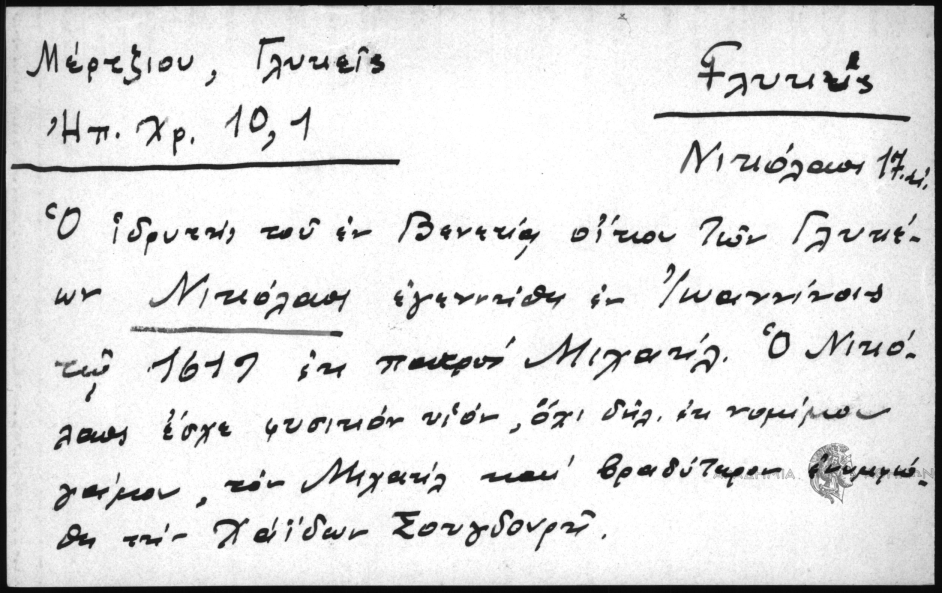 Μέρτζιου, Γλυκεῖς
Ἠπ. Χρ. 10,1
Γλυκεῖς
Νικόλαος 17. αἰ.
Ὁ ἱδρυτὴς τοῦ ἐν Βενετίᾳ οἴκου τῶν Γλυκέ-
ων Νικόλαος ἐγεννήθη ἐν Ἰωαννίνοις
τῷ 1619 ἐκ πατρὸς Μιχαήλ. Ὁ Νικό-
λαος ἔσχε φυσικὸν υἱόν, ὄχι δηλ. ἐκ νομίμου
γάμου, τὸν Μιχαήλ καὶ βραδύτερον ἐνυμφεύ-
θη τὴν Χάϊδων Σουγδουρῆ.